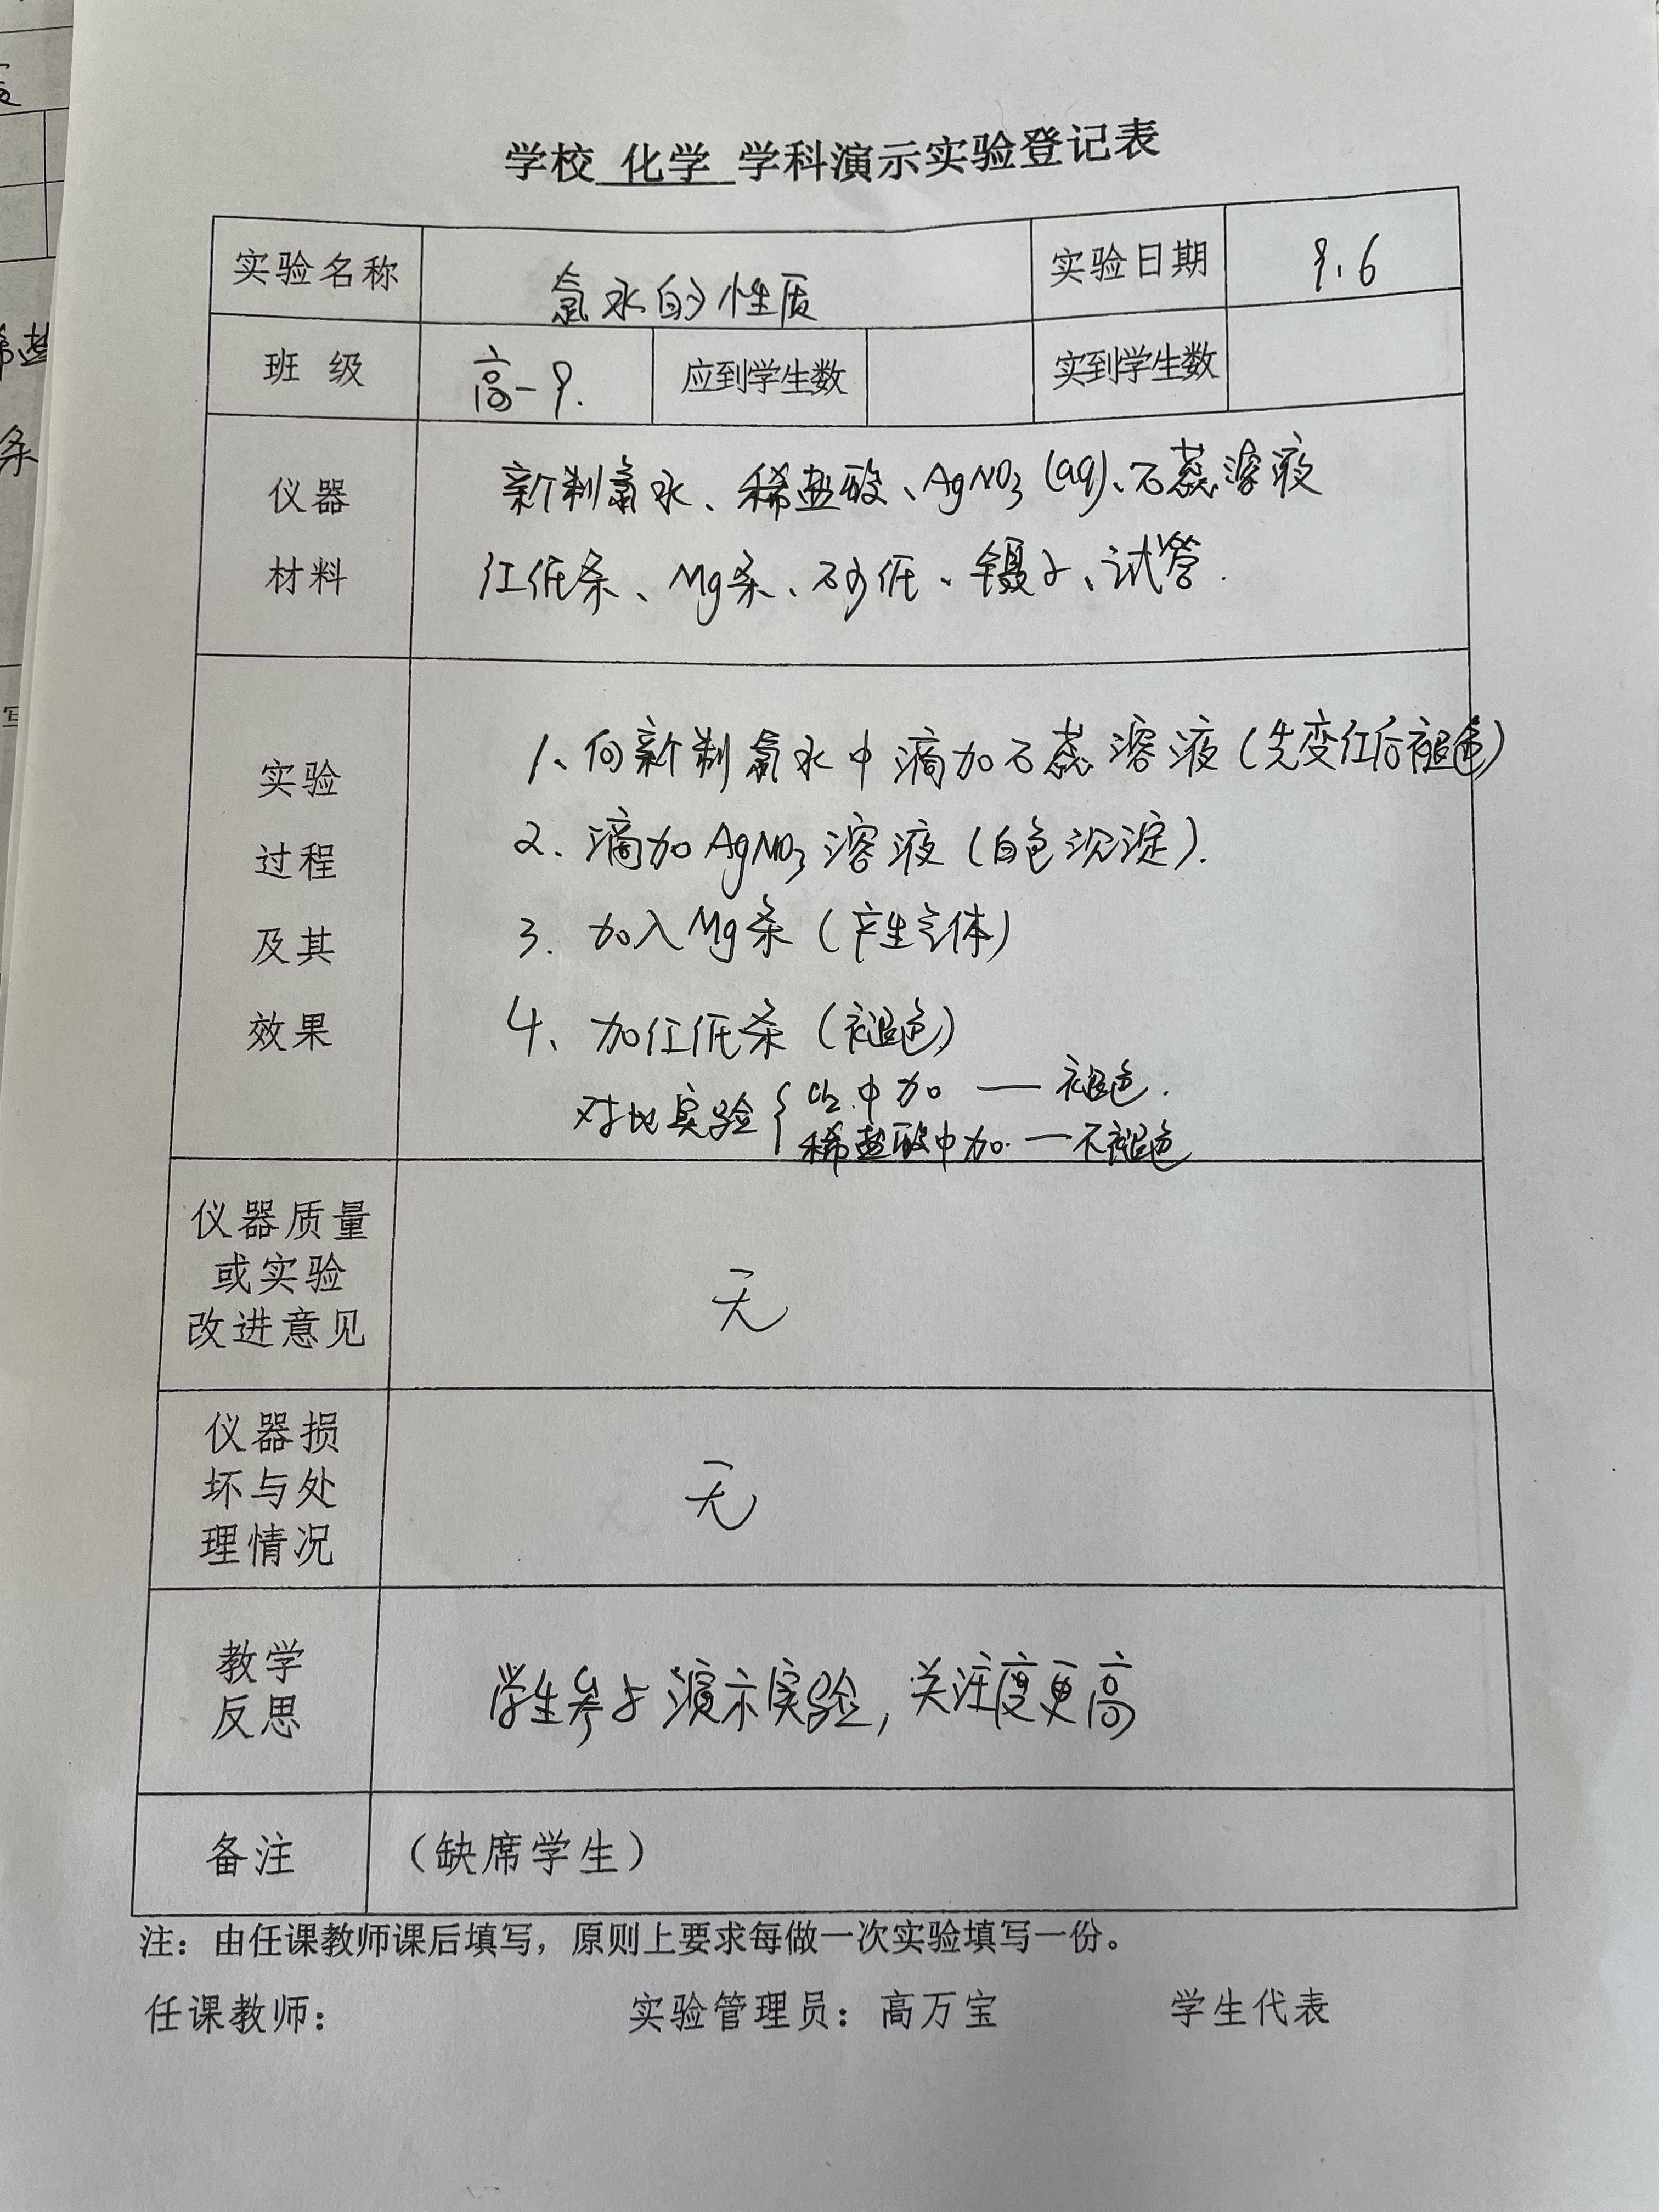 学校 化学 学科演示实验登记表
实验名称 氯水的性质 实验日期 9.6
班 级 高一9. 应到学生数 实到学生数
仪器
材料
新制氯水、稀盐酸、AgNO3(aq)、石蕊溶液
红纸条、Mg条、砂纸、镊子、试管.
实验
过程
及其
效果
1、向新制氯水中滴加石蕊溶液(先变红后褪色)
2、滴加AgNO3溶液(白色沉淀).
3. 加入Mg条(产生气体)
4、加红纸条(褪色)
对比实验{Cl2中加 — 褪色.
稀盐酸中加. — 不褪色
仪器质量
或实验
改进意见
无
仪器损
坏与处
理情况
无
教学
反思
学生参与演示实验,关注度更高
备注 (缺席学生)
注:由任课教师课后填写,原则上要求每做一次实验填写一份。
任课教师: 实验管理员:高万宝 学生代表
稀盐
条
写